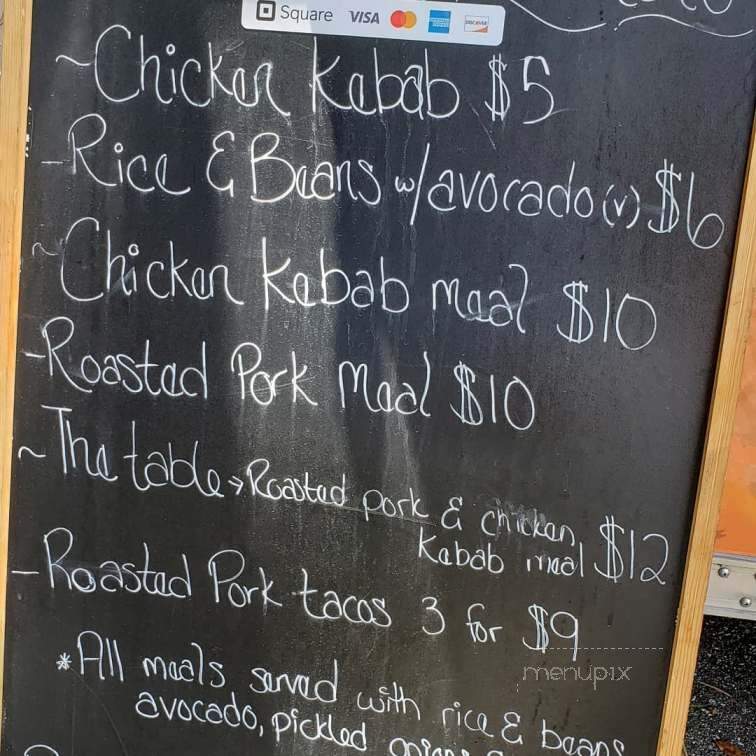 Square VISA DISCOVER
~Chicken Kabab $5
-Rice & Beans w/avocado (v) $6
~Chicken Kabab meal $10
-Roasted Pork Meal $10
~The table → Roasted pork & chicken
Kabab meal $12
-Roasted Pork tacos 3 for $9
menupix
*All meals served with rice & beans
avocado, pickled onions